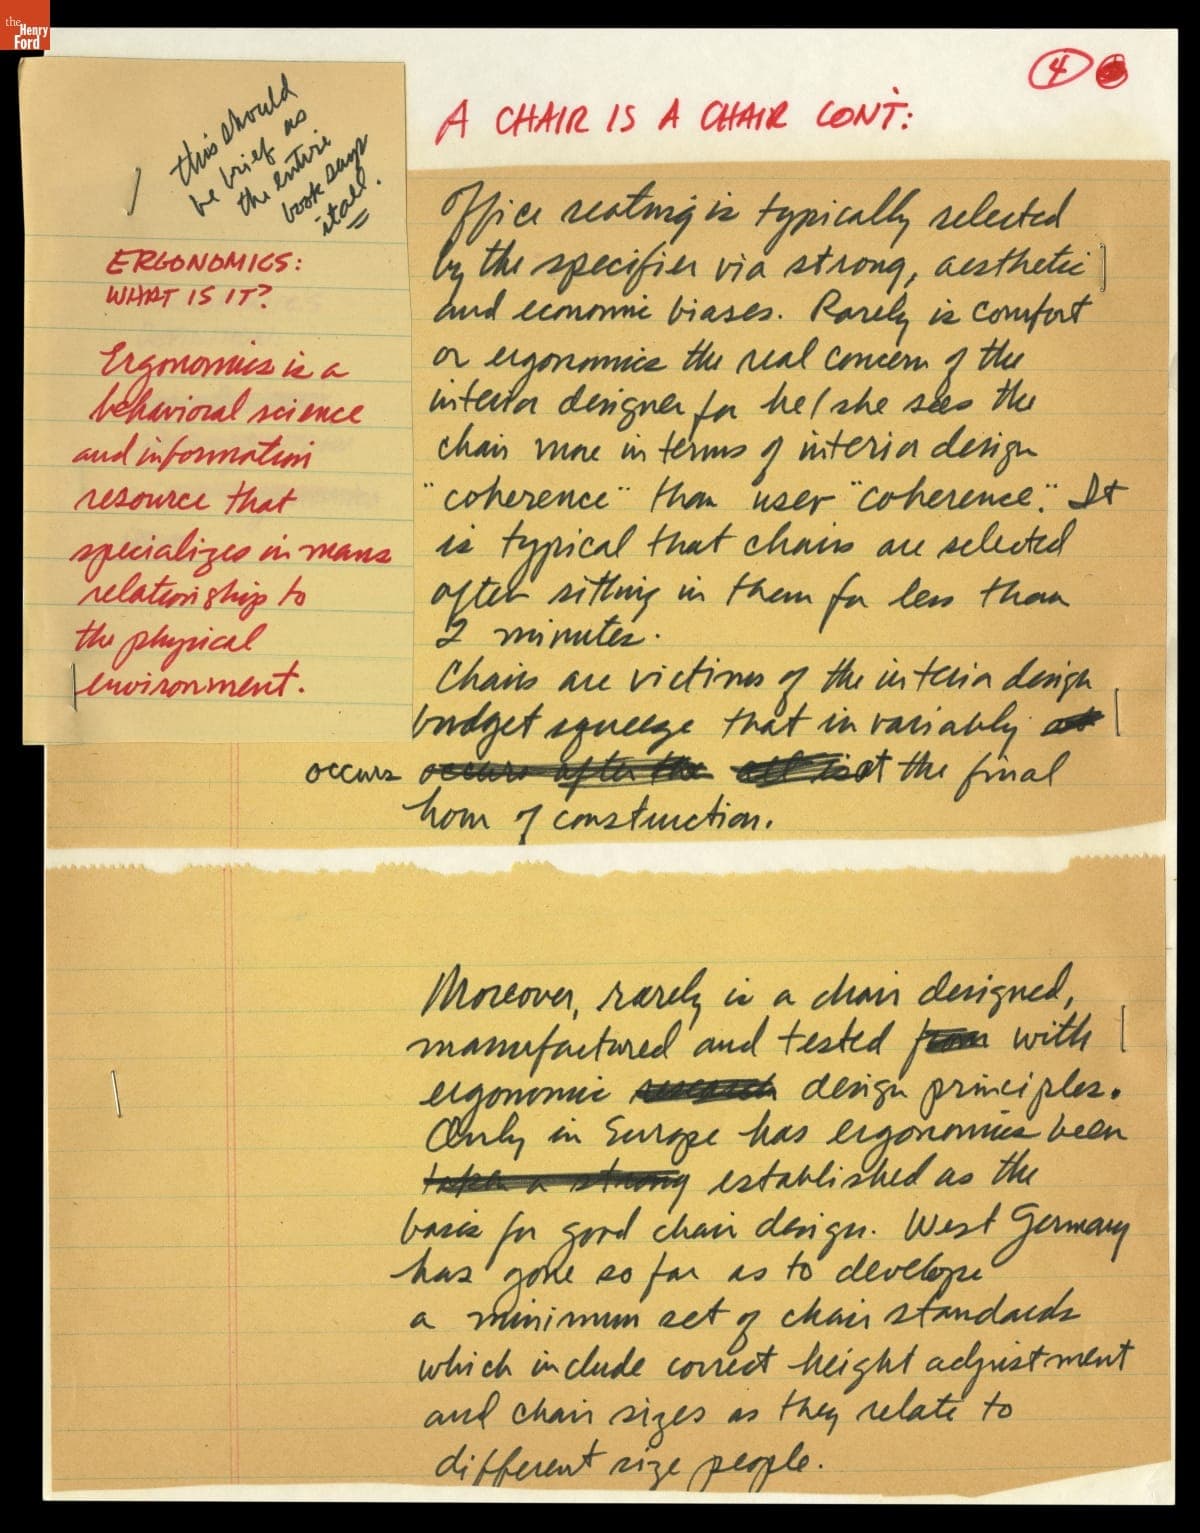 the
Henry
Ford
4
A CHAIR IS A CHAIR CONT:
this should
be brief as
the entire
book says
it all.
ERGONOMICS:
WHAT IS IT?
Ergonomics is a
behavioral science
and information
resource that
specializes in mans
relationship to
the physical
environment.
Office seating is typically selected
by the specifier via strong, aesthetic
and economic biases. Rarely is comfort
or ergonomics the real concern of the
interior designer for he/she sees the
chair more in terms of interior design
"coherence" than user "coherence". It
is typical that chairs are selected
after sitting in them for less than
2 minutes.
Chairs are victims of the interior design
budget squeeze that invariably
occurs occurs after the all is at the final
hour of construction.
Moreover, rarely is a chair designed,
manufactured and tested from with
ergonomic research design principles.
Only in Europe has ergonomics been
taken a strong established as the
basis for good chair design. West Germany
has gone so far as to develope
a minimum set of chair standards
which include correct height adjustment
and chair sizes as they relate to
different size people.